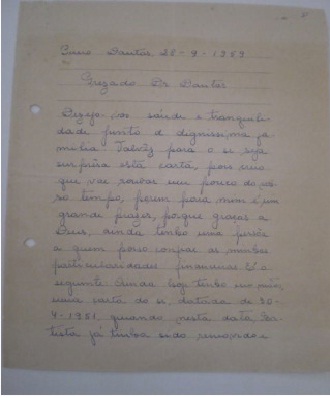 Santos, 28-9-1959
Prezado Dr Dantas
Desejo-vos saúde e tranquili-
dade junto a digníssima fa-
milia. Talvêz para o sr seja
surprêsa esta carta, pois
que vae roubar um pouco do vos-
so tempo, porem para mim é um
grande prazer, porque graças a
Deus, ainda tenho uma pessôa
a quem posso confiar as minhas
particularidades financeiras. É o
seguinte: Ainda hoje tenho em mão
uma carta do sr datada de
quando nesta data,
já tinha sido